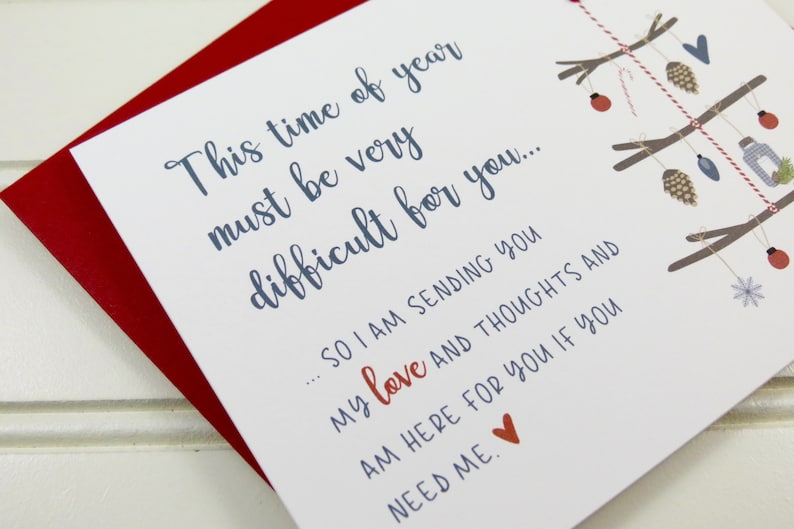 This time of year
must be very
difficult for you...
... SO I AM SENDING YOU
MY love AND THOUGHTS AND
AM HERE FOR YOU IF YOU
NEED ME.